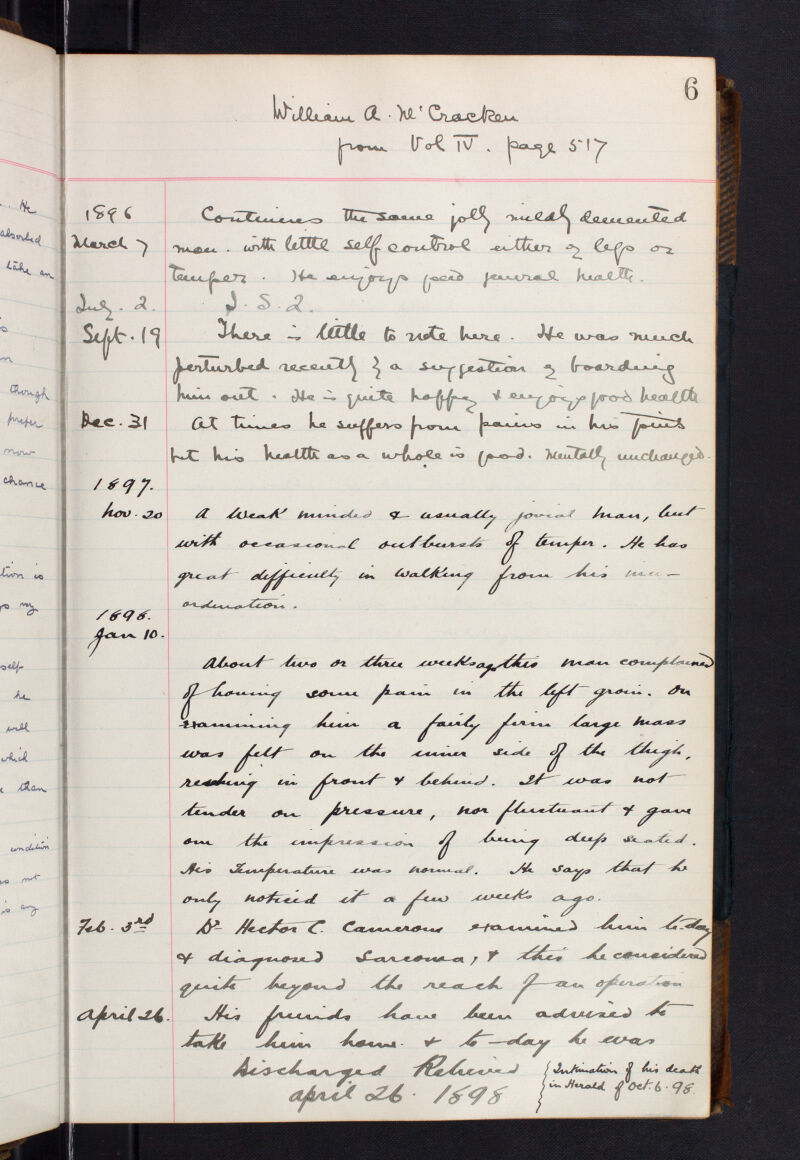 6
William A. McCracken
from Vol IV. page 517
1896
March 7
Continues the same jolly mildly demented
man. with little self control either of legs or
temper. He enjoys good general health.
July. 2. I. S. 2.
Sept. 19 There is little to note here. He was much
perturbed recently by a suggestion of boarding
him out. He is quite happy & enjoys good health
Dec. 31 At times he suffers from pains in his joints
but his health as a whole is good. Mentally unchanged.
1897.
Nov. 20 A weak minded & usually jovial man, but
with occasional outbursts of temper. He has
great difficulty in walking from his inco-
ordination.
1898.
Jan 10.
About two or three weeks ago this man complained
of having some pain in the left groin. On
examining him a fairly firm large mass
was felt on the inner side of the thigh,
reaching in front & behind. It was not
tender on pressure, nor fluctuant & gave
one the impression of being deep seated.
His Temperature was normal. He says that he
only noticed it a few weeks ago.
Feb. 3rd Dr Hector C. Cameron examined him to-day
& diagnosed Sarcoma, & this he considered
quite beyond the reach of an operation
April 26. His friends have been advised to
take him home. & to-day he was
Discharged Relieved
April 26. 1898
Intimation of his death
in Herald of Oct. 6. 98.
He
absorbed
take an
though
prefer
now
chance
self
he
well
which
than
condition
not
is any